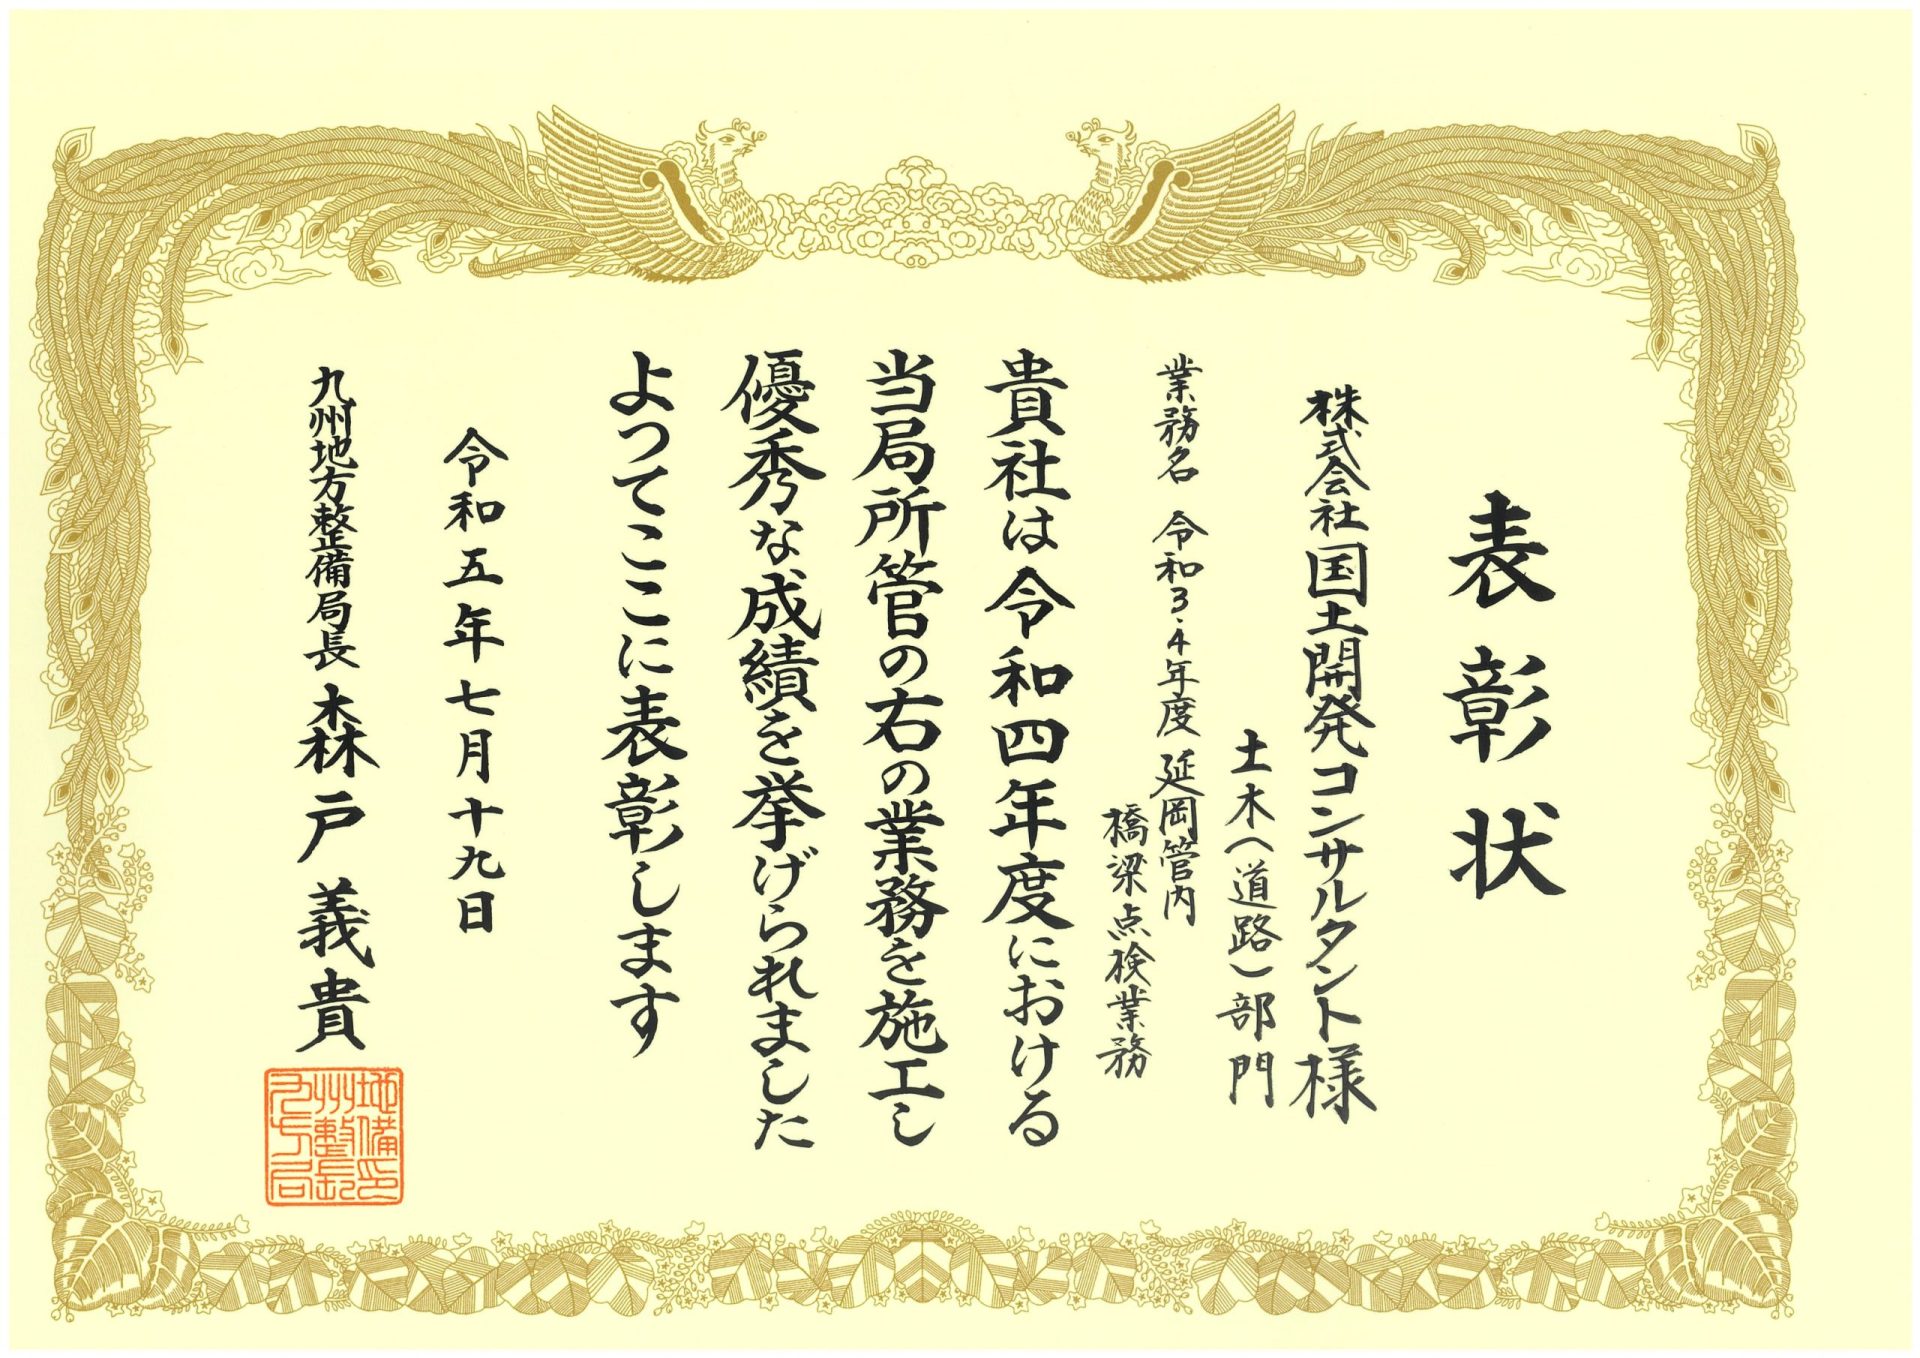 表彰状
株式会社国土開発コンサルタント様
土木(道路)部門
業務名 令和3・4年度 延岡管内
橋梁点検業務
貴社は令和四年度における
当局所管の右の業務を施工し
優秀な成績を挙げられました
よつてここに表彰します
令和五年七月十九日
九州地方整備局長 森戸義貴
九州地方整備局長印